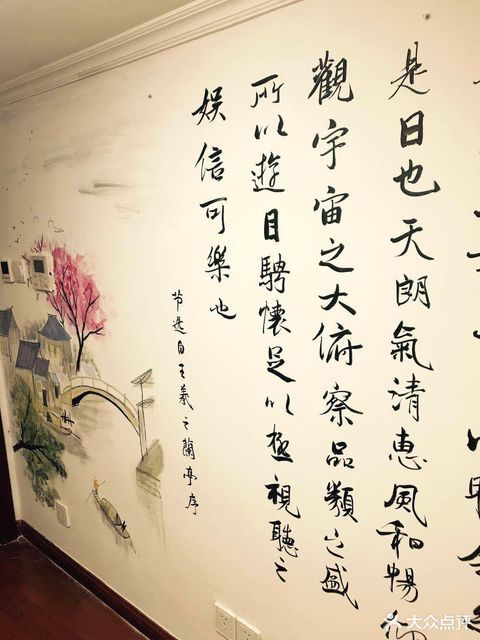 是日也天朗氣清惠風和暢仰
觀宇宙之大俯察品類之盛
所以遊目騁懷足以極視聽之
娛信可樂也
节选自王羲之蘭亭序
大众点评